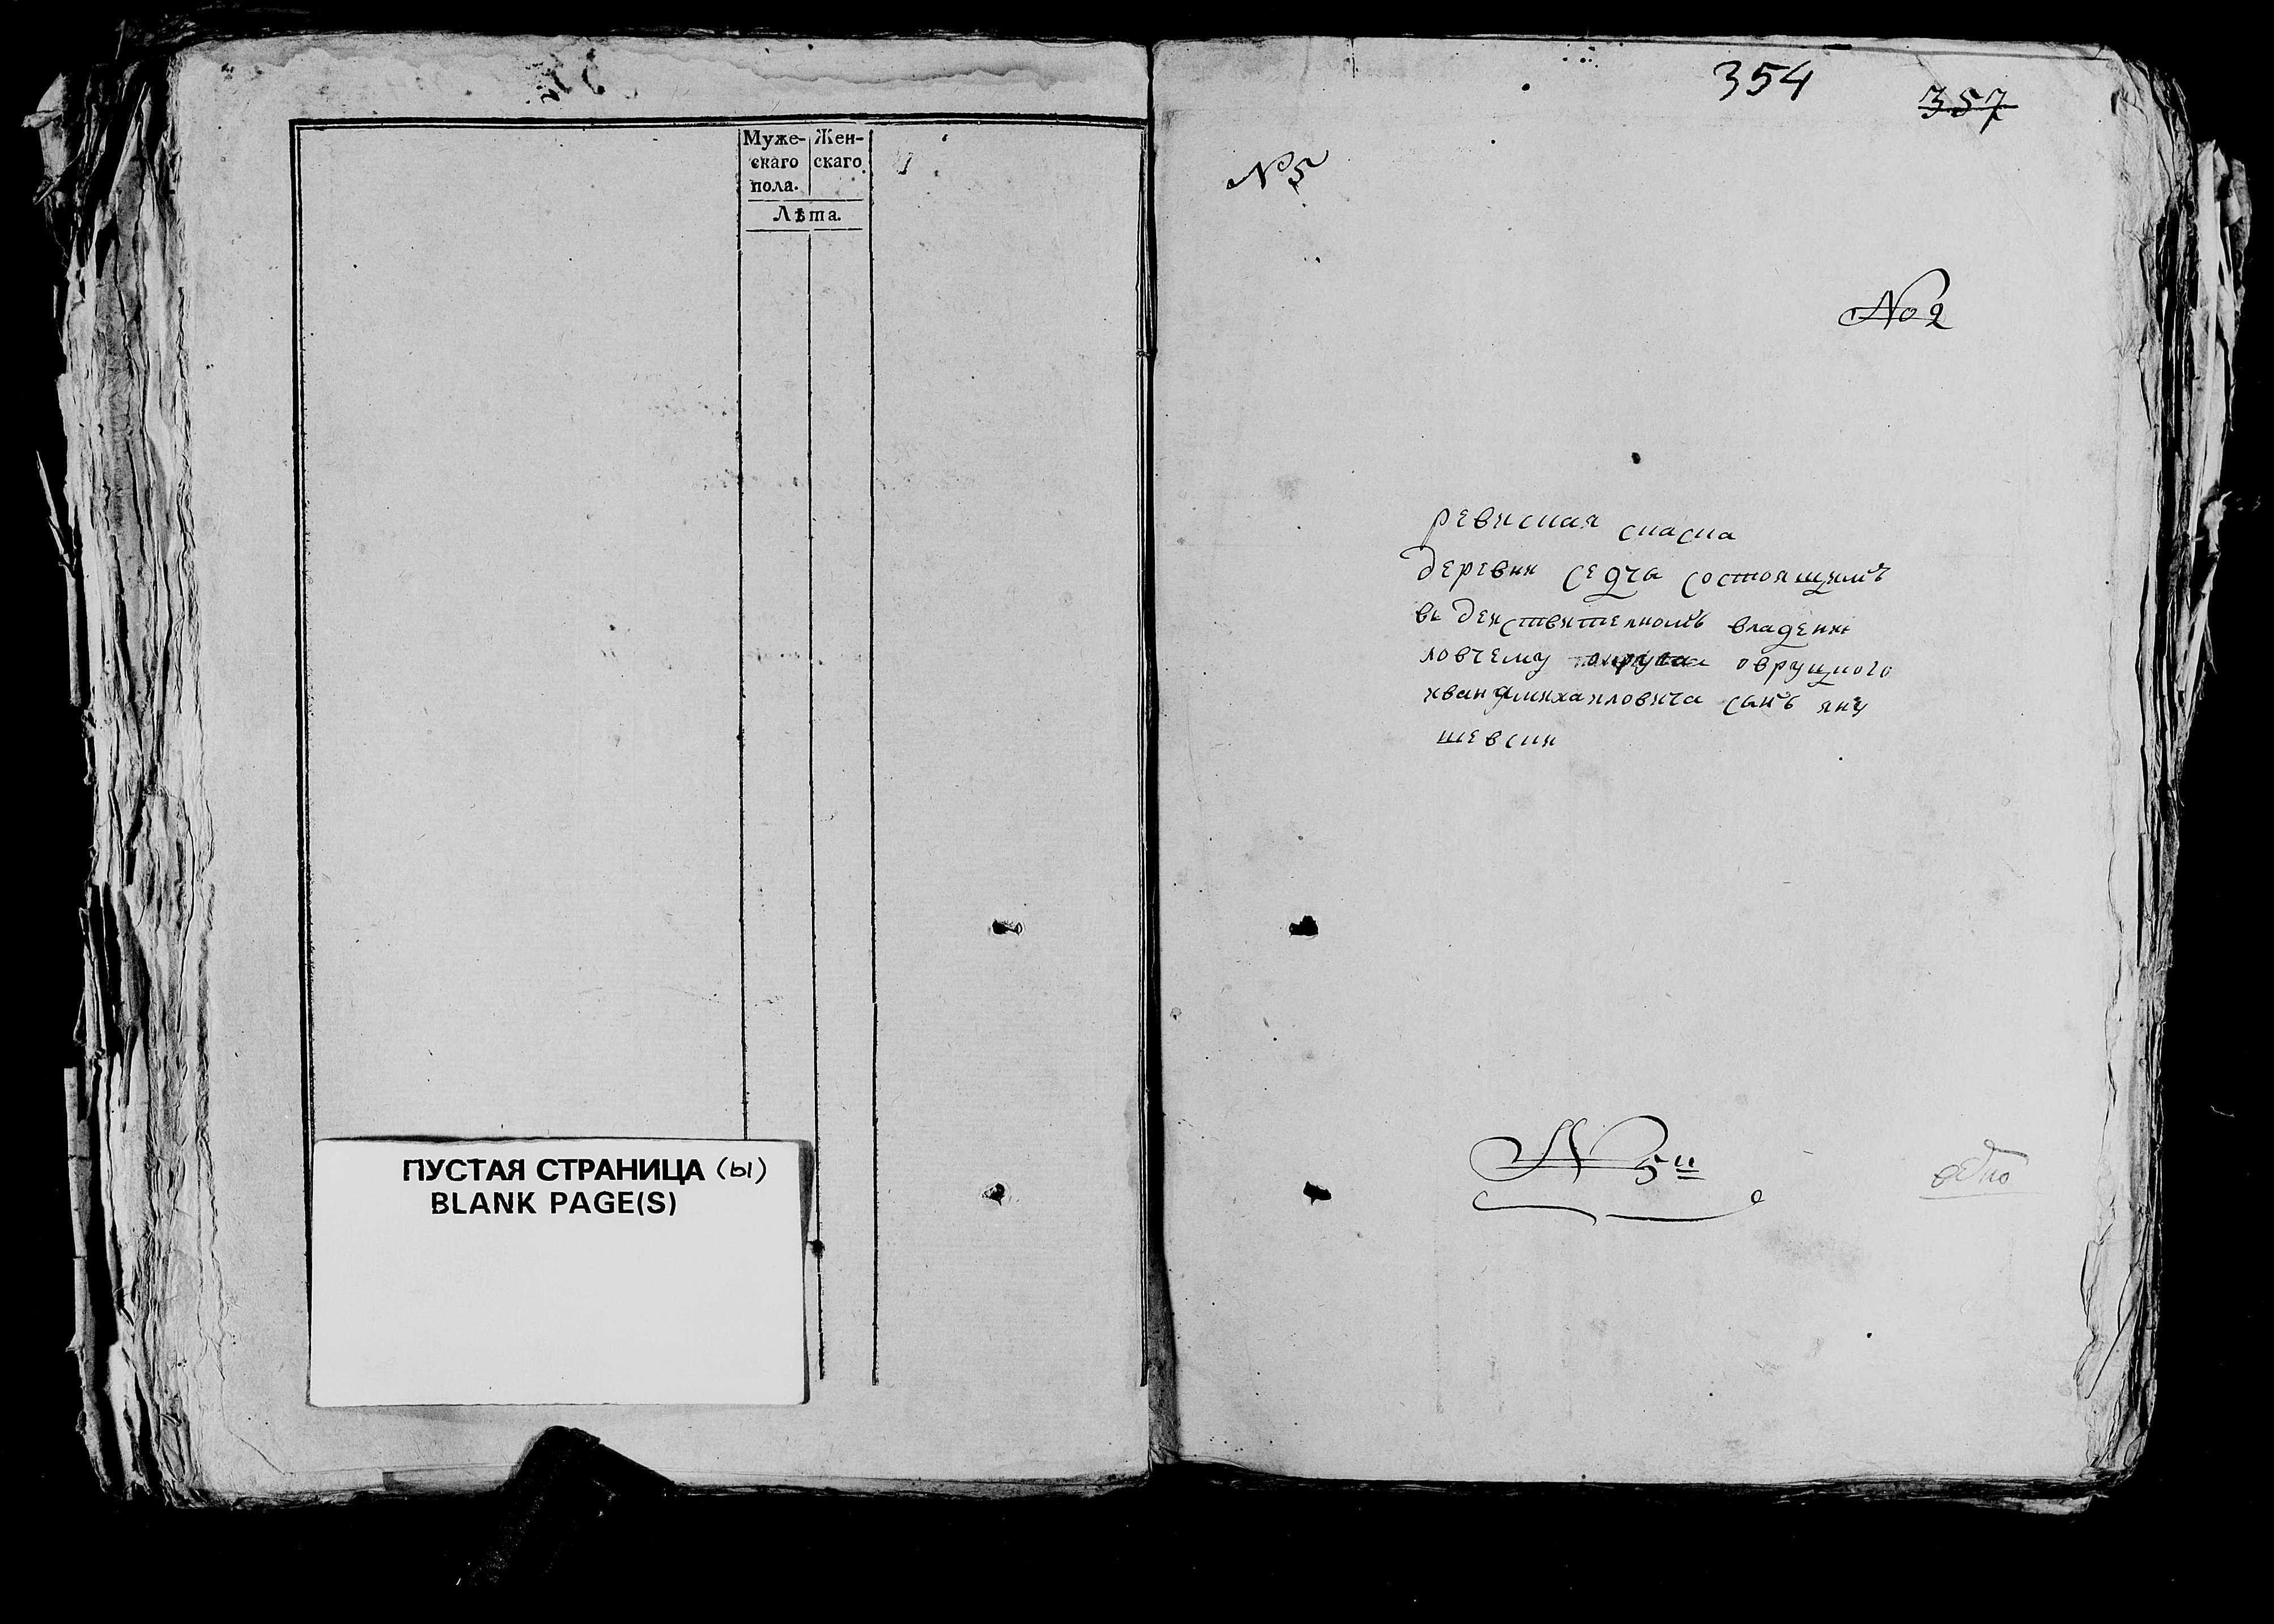 Муже- Жен-
скаго скаго
пола.
Лѣта.
ПУСТАЯ СТРАНИЦА (Ы)
BLANK PAGE(S)
354
357
№ 5
№ 2
ревиская скаска
деревни седча состоящимъ
въ действителномъ владении
ловчему овруцкого
иван михаиловича сынъ яну
шевски
№ 5й
одно